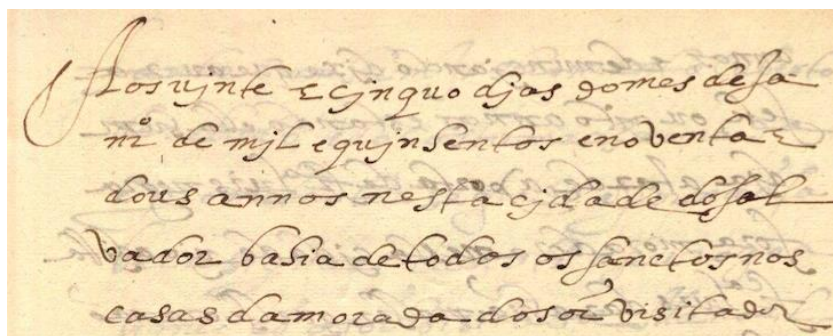 Aos vinte e cinquo djas do mes de Ja
nro de mjl e quinsentos e noventa e
dous annos nesta cjdade do sal
vador bahia de todos os sanctos nas
casas da morada do sor visitador